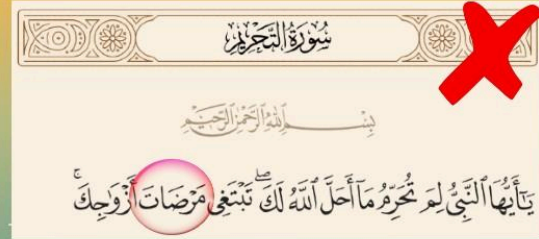 سُورَةُ التَّحْرِيمِ
بِسْمِ ٱللَّهِ ٱلرَّحْمَٰنِ ٱلرَّحِيمِ
يَٰٓأَيُّهَا ٱلنَّبِيُّ لِمَ تُحَرِّمُ مَآ أَحَلَّ ٱللَّهُ لَكَۖ تَبْتَغِي مَرْضَاتَ أَزْوَٰجِكَۚ